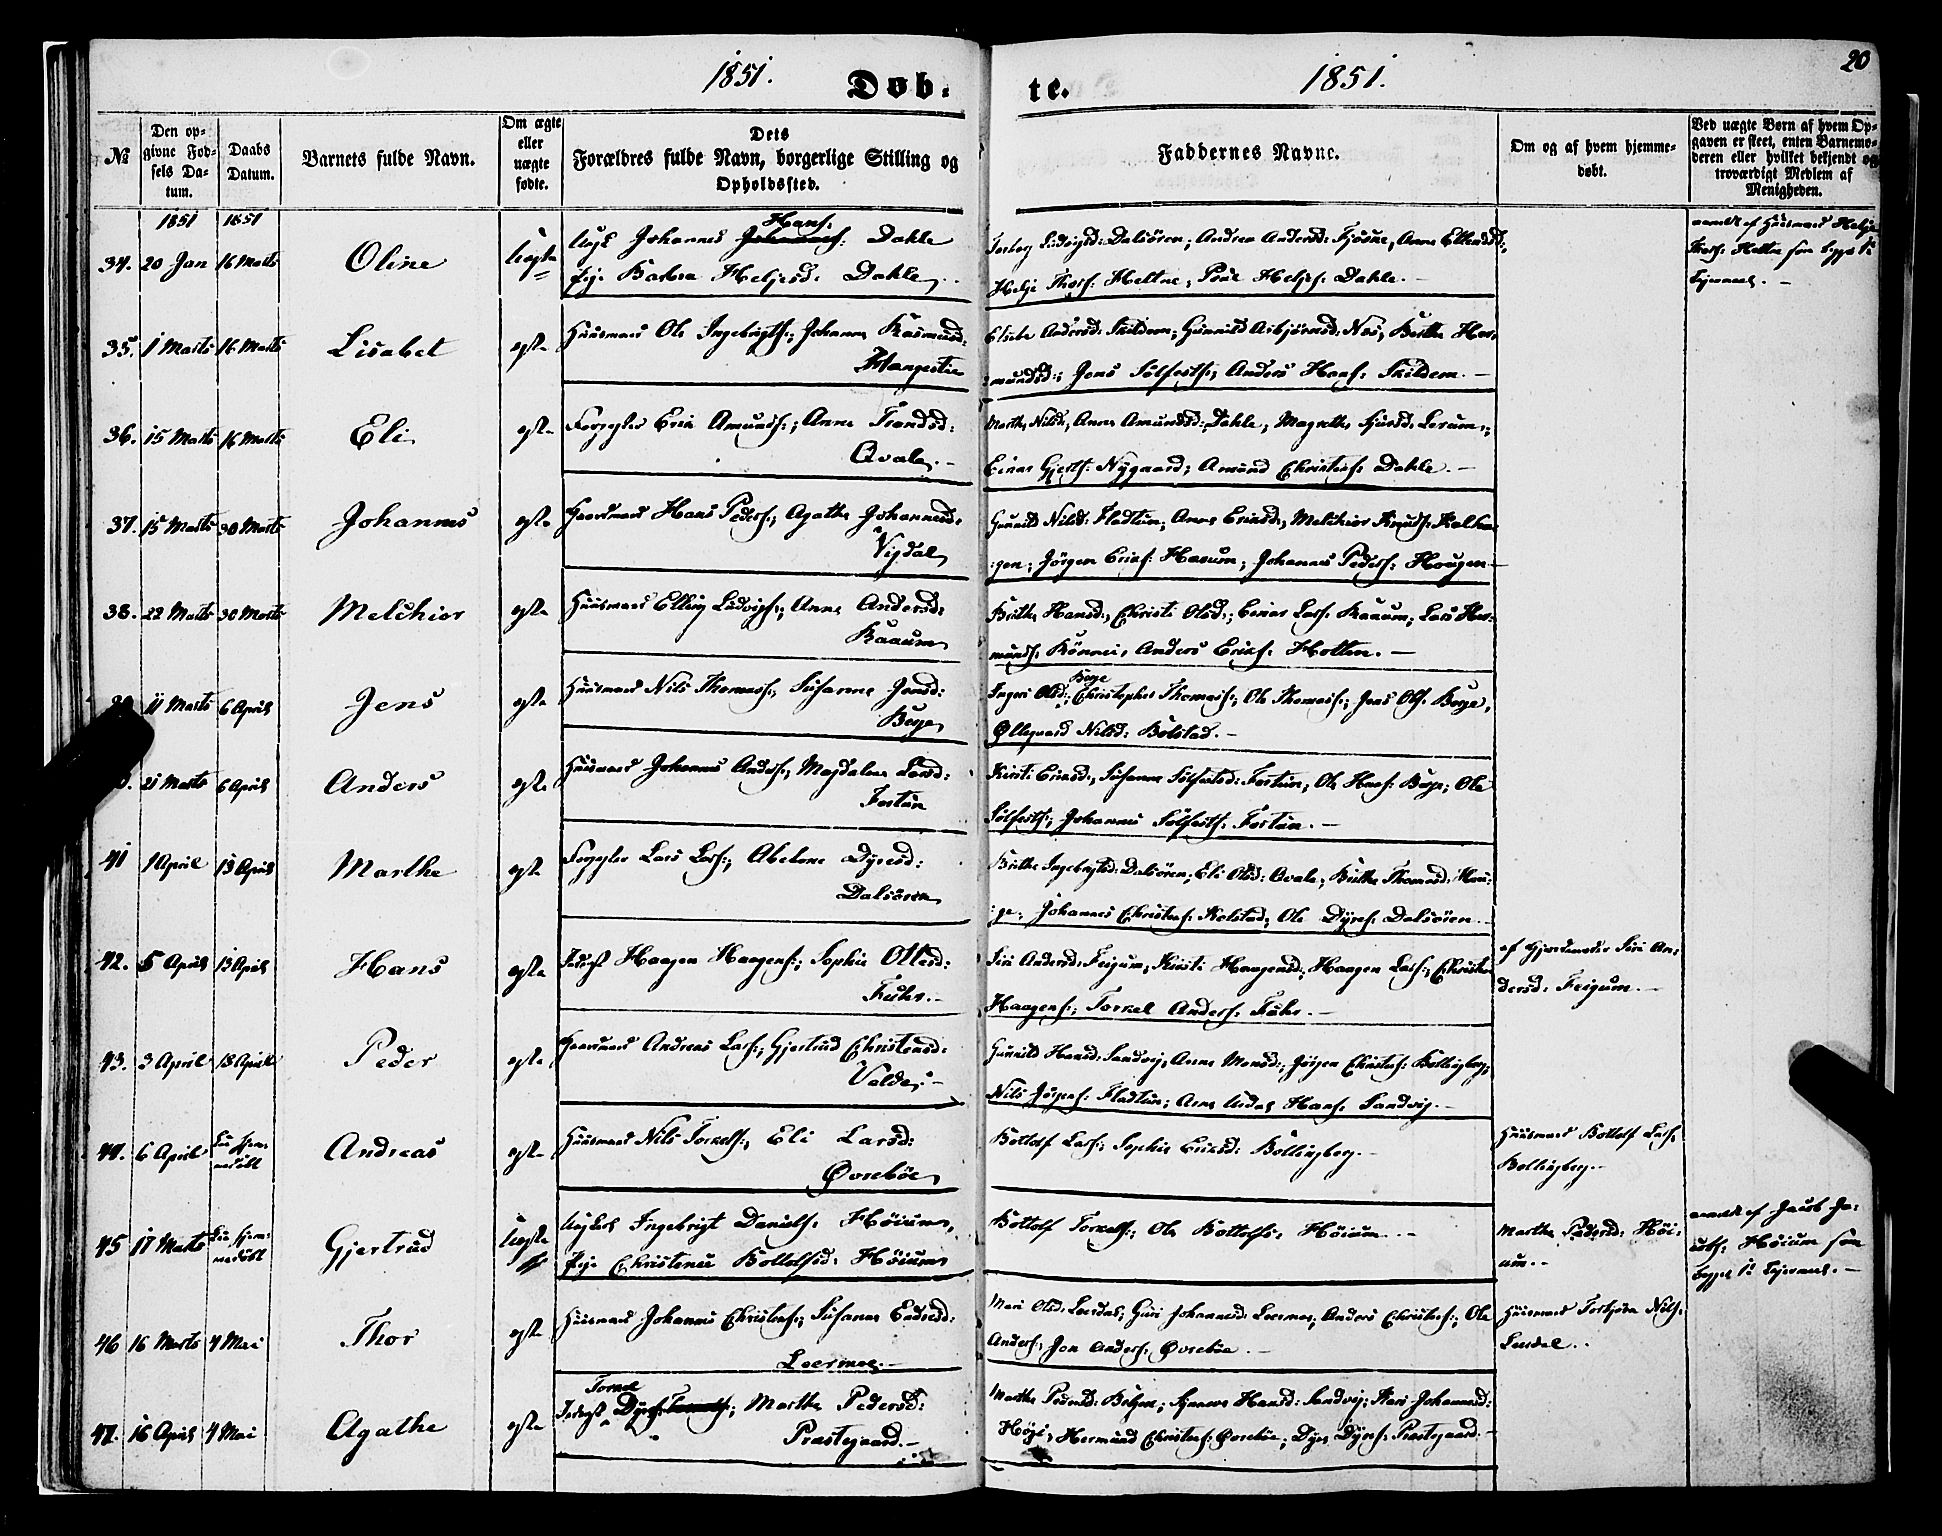 1851.
Døb-
te.
1851.
20
No
Den op-
givne Fød-
sels Da-
tum.
Daabs
Datum.
Barnets fulde Navn.
Om ægte
eller
uægte
fødte.
Dets
Forældres fulde Navn, borgerlige Stilling og
Opholdssted.
Faddernes Navne.
Om og af hvem hjemme-
døbt.
Ved uægte Børn af hvem Op-
gaven er skeet, enten Barnemo-
deren eller hvilket bekjendt og
troværdigt Medlem af
Menigheden.
1851 1851
34. 20 Jan 16 Marts Oline Uægte
Ungk Johannes Hans: Dahle
Pige Barbra Heljesd: Dahle
Dalsøren; Andrea Andersd:
Helje Thors: Heltne, Poul Heljes: Dahle.
anmeldt af Huusmand Helje
Thors: Heltne som begges 1ste
Leiermaal.
35. 1 Marts 16 Marts Lisabet ægte
Huusmand Ole Ingebrigts:; Johanne Rasmusd:
Elsebe Andersd: Skildem; Gunnild Asbjørnsd: Næs, Brithe Her-
mundsd:; Jens Sølfests:; Anders Hans: Skildem.
36. 15 Marts 16 Marts Eli ægte
Erik Amunds:; Anna Trondsd:
Qvale.
Marthe Nilsd:, Anna Amundsd: Dahle, Magrethe Lerum;
Einar Gjerts: Nygaard; Amund Christens: Dahle.
37. 15 Marts 30 Marts Johannes ægte
Gaardmand Hans Peders:; Agatha Johannesd:
Vigdal
Gunnild Nilsd: Fladtun; Anna Eriksd:, Melchior Knuds:
Jørgen Eriks: Haavum; Johannes Peders: Hougen
38. 22 Marts 30 Marts Melchior ægte
Huusmand Elling Ludvigs:; Anna Andersd:
Kaaum
Brithe Hansd:, Christi Olsd:; Einar Lars: Kaaum; Lars Her-
munds: Rønnei, Anders Eriks: Holten.
11 Marts 6 April Jens ægte
Huusmand Nils Thomas:; Susanne Jensd:
Berge
Berge
Ingeri Olsd:; Christopher Thomas:; Ole Thomas:; Jens Ols: Berge,
Øllegaard Nilsd: Bolstad.
21 Marts 6 April Anders ægte
Huusmand Johannes Anders:, Magdalene Larsd:
Fortun
Kirsti Eriksd:, Susanne Sølfestsd: Fortun, Ole Hans: Berge; Ole
Sølfests:; Johannes Sølfests: Fortun.
41 1 April 13 April Marthe ægte
Lars Lars:; Abelone Dyresd:
Dalsøren
Brithe Ingebrigtsd: Dalsøren, Eli Olsd: Qvale, Brithe Thomasd:
Johannes Christens: Kolstad; Ole Dyres: Dalsøren.
42. 5 April 13 April Hans ægte
Haagen Haagens:; Sophie Ottesd:
Fuhr.
Siri Andersd: Feigum, Kirsti Haagensd:, Haagen Lars:, Christen
Haagens:; Torkel Anders: Fuhr.
af Gjordemoder Siri An-
dersd: Feigum.
43. 3 April 13 April Peder ægte
Gaardmand Andreas Lars:, Gjertrud Christensd:
Valde.
Gunnild Hansd: Sandvig, Anna Monsd:; Jørgen Christens: Bollingberg;
Nils Jørgens: Fladtun; Hans: Sandvig.
44. 6 April Hjem-
medøbt Andreas ægte
Huusmand Nils Torkels:, Eli Larsd:
Øvrebøe
Bottolf Lars:; Sophie Eriksd: Bollingberg.
Huusmand Bottolf Lars:
Bollingberg.
45 17 Marts Hjem-
medøbt Gjertrud Uægte
Ungkarl Ingebrigt Daniels: Høium,
Pige Christense Bottolfsd: Høium
Bottolf Torkels:, Ole Bottolfs: Høium.
Marthe Pedersd: Høi-
um.
anmeldt af Jacob Ja-
cobs: Høium som
begges 1ste Leiermaal.
46 16 Marts 4 Mai Thor ægte
Huusmand Johannes Christens:, Susanne Endresd:
Leermoe.
Mari Olsd: Leerdal, Guri Johannesd: Leermoe, Anders Christens:; Ole
Anders:, Jon Anders: Øvrebøe.
Huusmand Torbjørn Nils:
47. 16 April 4 Mai Agathe ægte
Torkel
Marthe Pedersd:
Præstegaard.
Marthe Pedersd: Hansd: Sandvig; Kari Johannesd:
Høge, Hermund Christens: Øvrebøe; Dyre Dyres: Præstegaard.